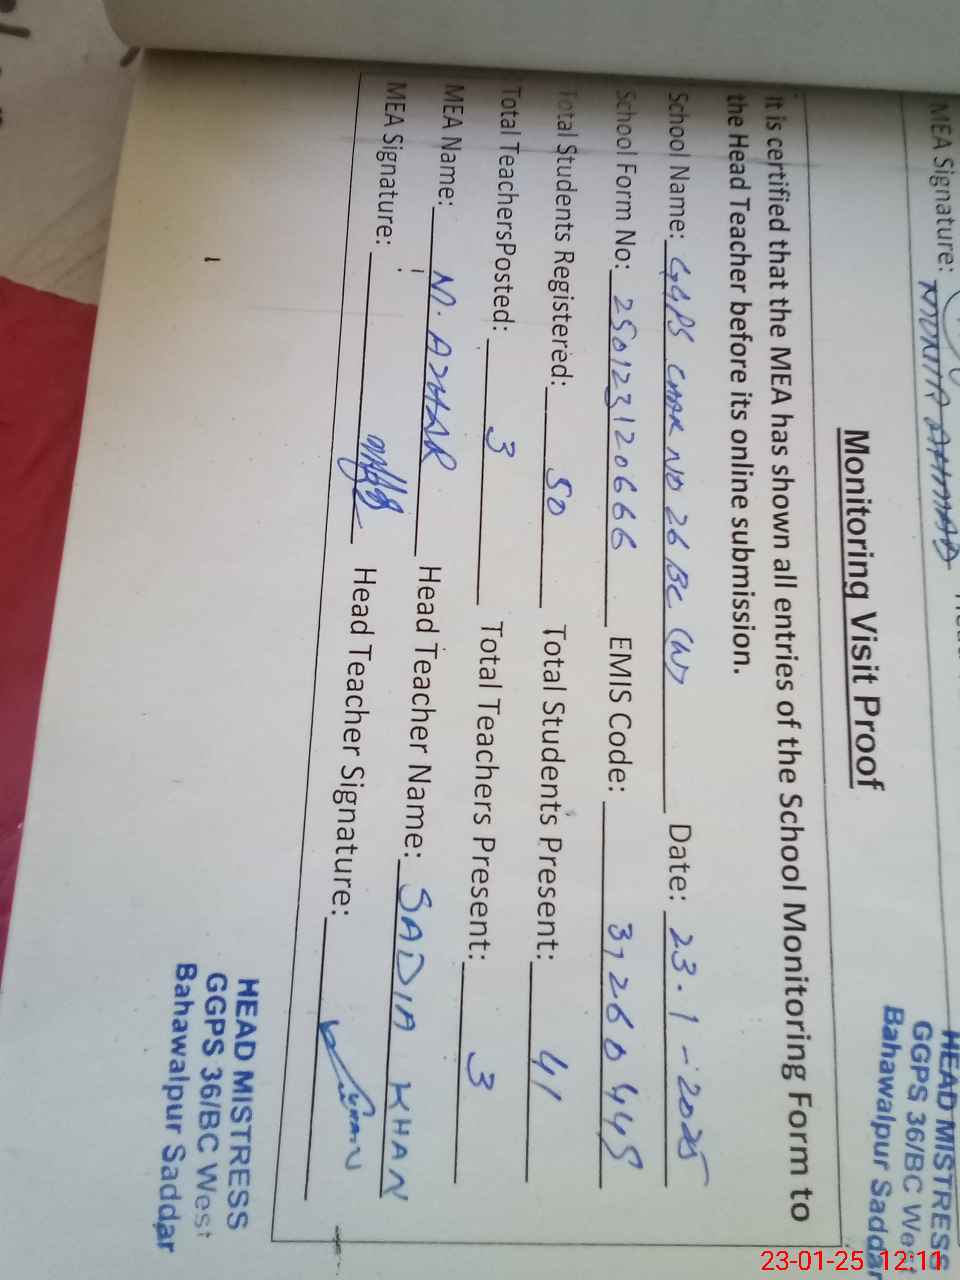 MEA Signature: MUNIR AHMAD
HEAD MISTRESS
GGPS 36/BC West
Bahawalpur Saddar
Monitoring Visit Proof
It is certified that the MEA has shown all entries of the School Monitoring Form to
the Head Teacher before its online submission.
School Name: GGPS CHAK NO 36 BC (W) Date: 23.1-2025
School Form No: 250123120666 EMIS Code: 31260445
Total Students Registered: 50 Total Students Present: 41
Total TeachersPosted: 3 Total Teachers Present: 3
MEA Name: M. AZHAR Head Teacher Name: SADIA KHAN
MEA Signature: Head Teacher Signature:
HEAD MISTRESS
GGPS 36/BC West
Bahawalpur Saddar
23-01-25 12:11